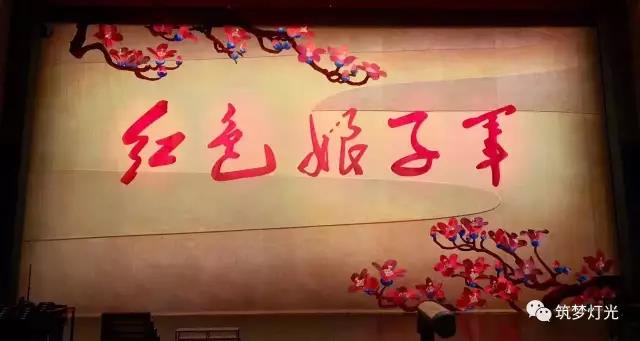 红色娘子军
筑梦灯光